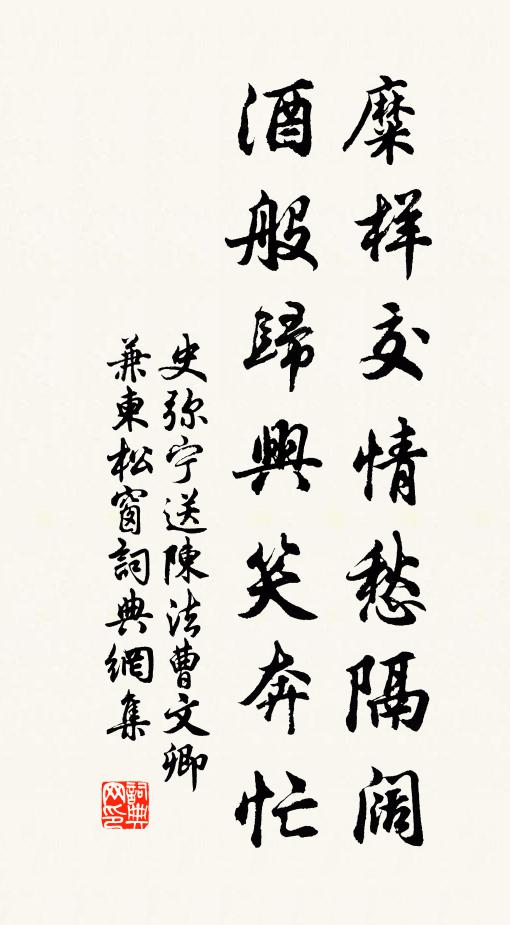 糜样交情愁隔阔
酒般歸興笑奔忙
史弥宁送陳法曹文卿
兼東松窗詞典網集
詞典网印